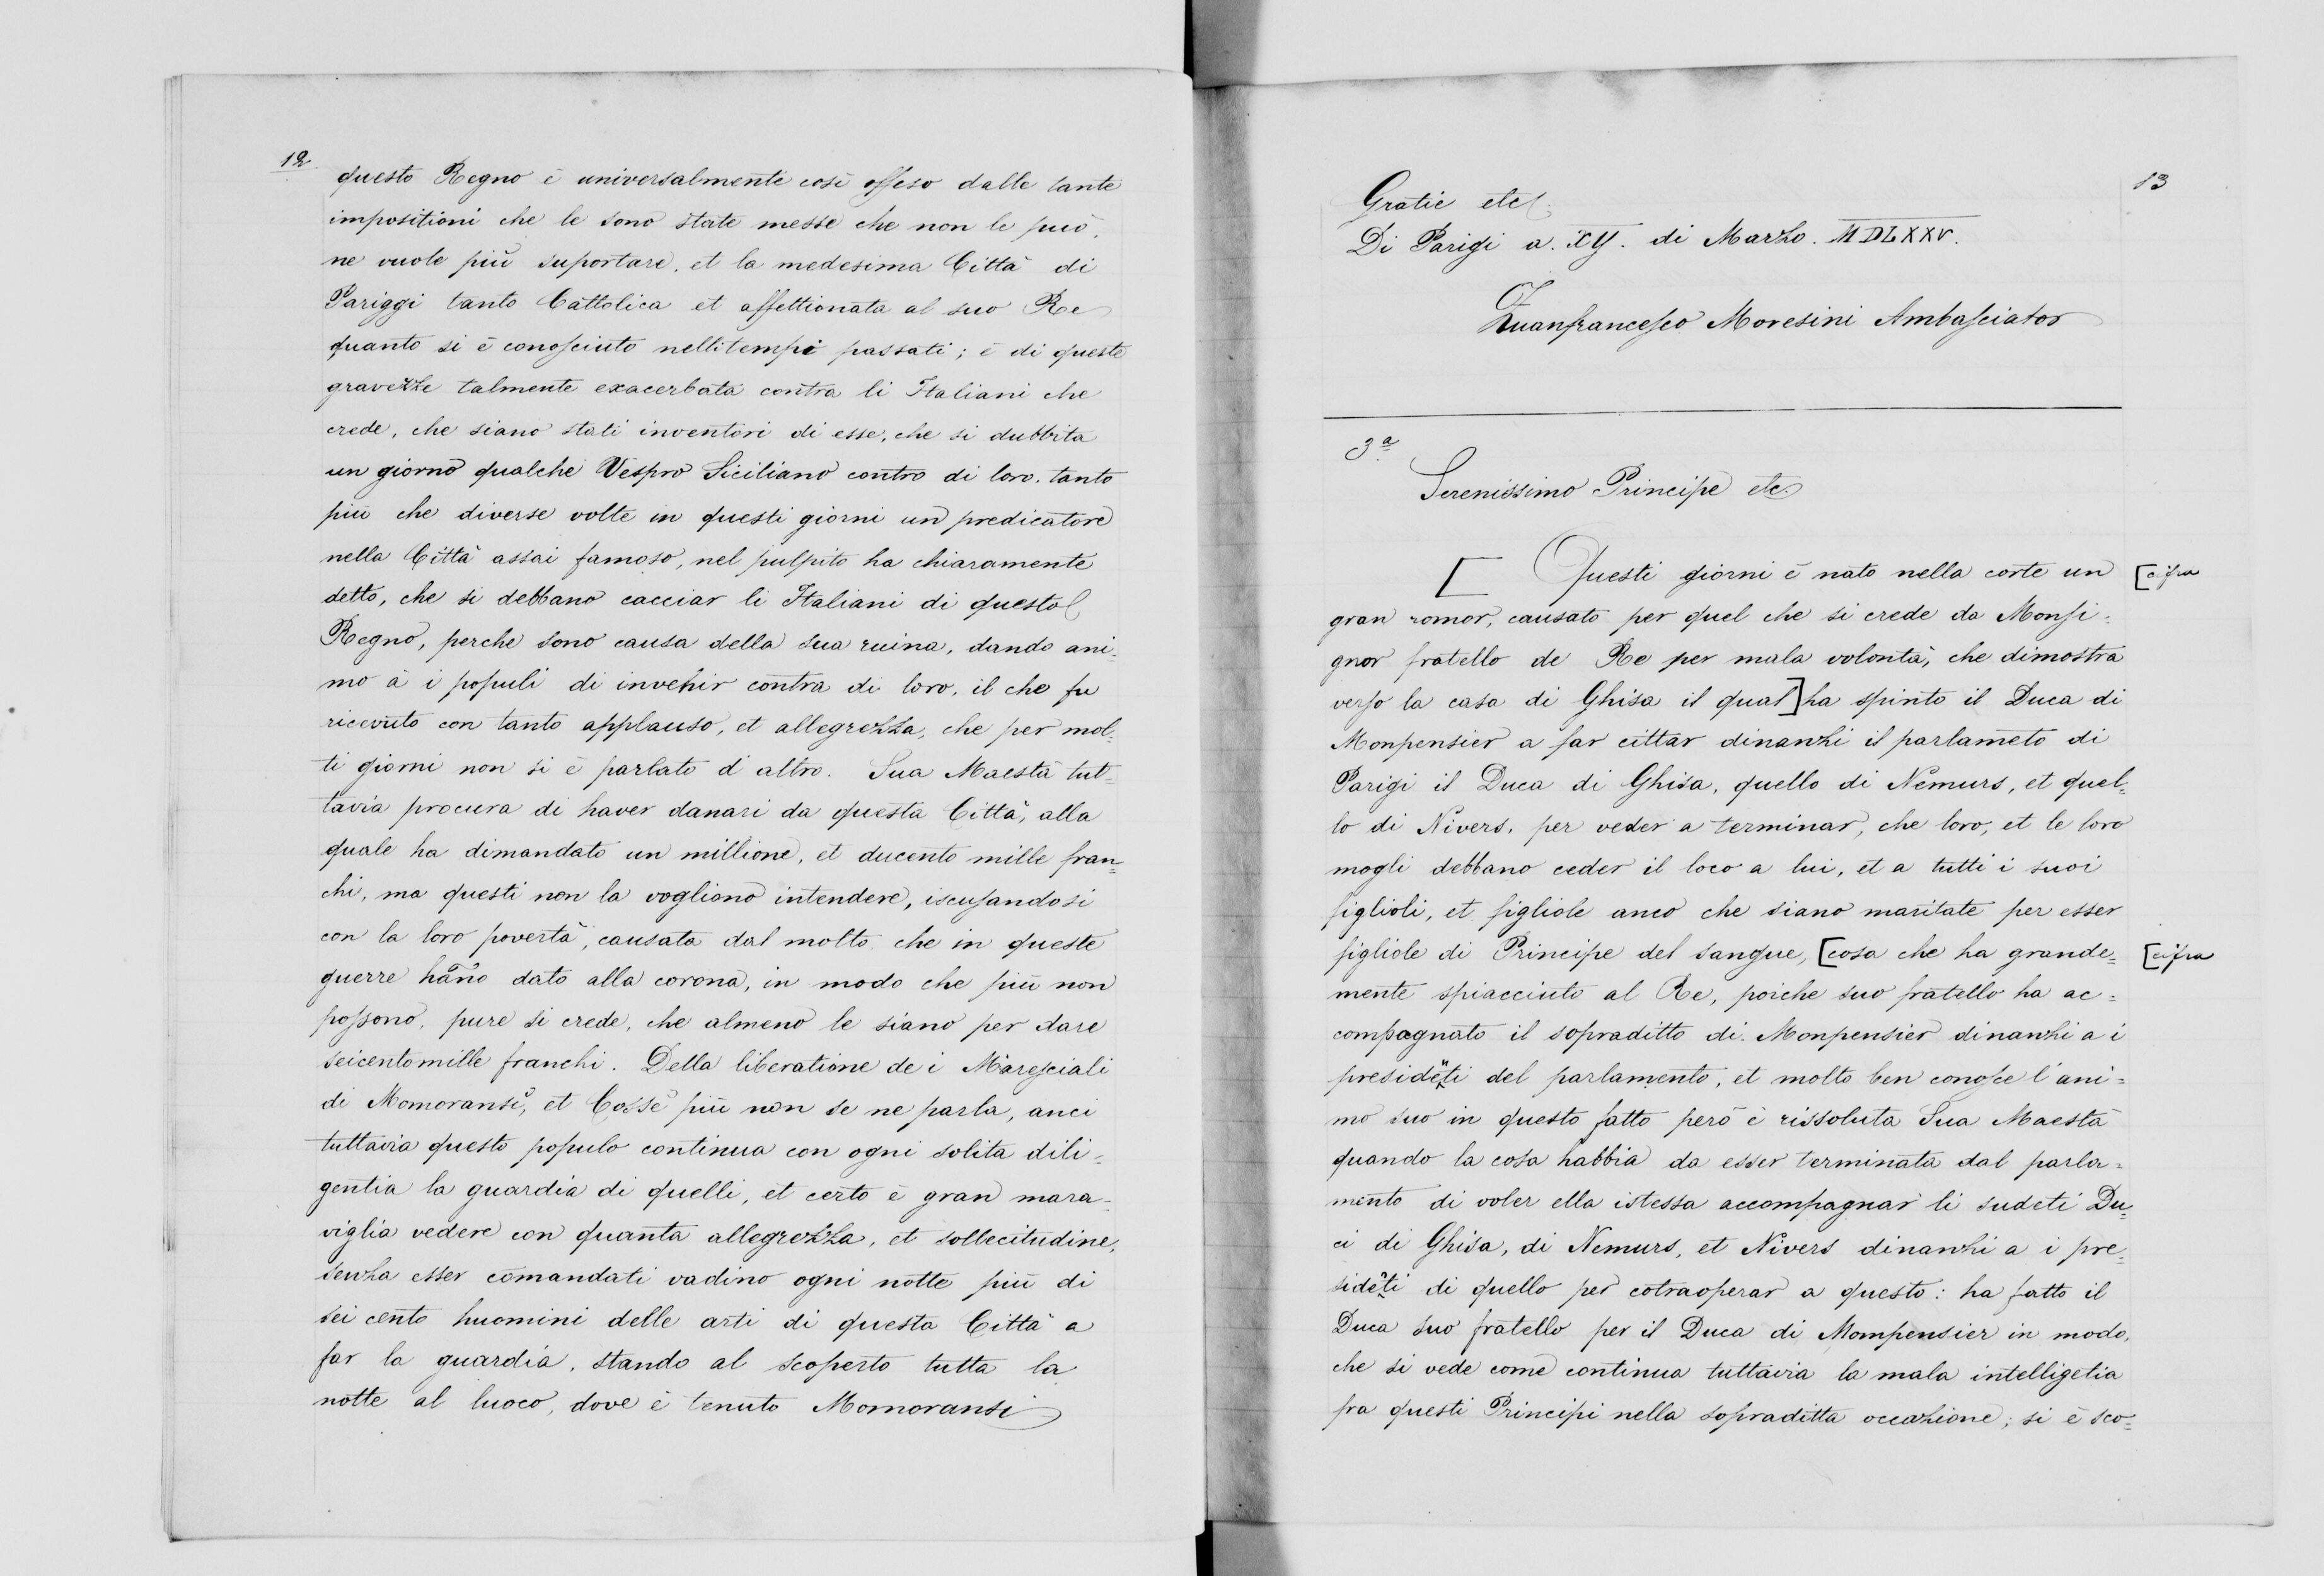 12
questo Regno è universalmente cosi offeso dalle tante
impositioni che le sono state messe che non le può,
ne vuole più suportare, et la medesima Città di
Pariggi tanto Cattolica et affettionata al suo Re
quanto si è conosciuto nelli tempi passati; è di queste
gravezze talmente exacerbata contra li Italiani che
crede, che siano stati inventori di esse, che si dubbita
un giorno qualche Vespro Siciliano contro di loro, tanto
più che diverse volte in questi giorni un predicatore
nella Città assai famoso, nel pulpito ha chiaramente
detto, che si debbano cacciar li Italiani di questo
Regno, perche sono causa della sua ruina, dando ani=
mo à i populi di invehir contra di loro, il che fu
ricevuto con tanto applauso, et allegrezza, che per mol=
ti giorni non si è parlato d altro. Sua Maestà tut=
tavia procura di haver danari da questa Città, alla
quale ha dimandato un millione, et ducento mille fran=
chi, ma questi non la vogliono intendere, iscusandosi
con la loro povertà, causata dal molto che in queste
guerre hãno dato alla corona, in modo che più non
possono, pure si crede, che almeno le siano per dare
seicentomille franchi. Della liberatione de i Maresciali
di Momoransì, et Cossè più non se ne parla, anci
tuttavia questo populo continua con ogni solita dili=
gentia la guardia di quelli, et certo è gran mara=
viglia vedere con quanta allegrezza, et sollecitudine,
senza esser comandati vadino ogni notte più di
sei cento huomini delle arti di questa Città a
far la guardia, stando al scoperto tutta la
notte al luoco, dove è tenuto Momoransi
13
Gratie etc.
Di Parigi a. XIJ. di Marzo. MDLXXV.
Zuanfrancesco Moresini Ambasciator
3ª
Serenissimo Principe etc.
[ Questi giorni è nato nella corte un [cifra
gran romor, causato per quel che si crede da Monsi=
gnor fratello de Re per mala volontà, che dimostra
verso la casa di Ghisa il qual] ha spinto il Duca di
Monpensier a far cittar dinanzi il parlameto di
Parigi il Duca di Ghisa, quello di Nemurs, et quel=
lo di Nivers, per veder a terminar, che loro, et le loro
mogli debbano ceder il loco a lui, et a tutti i suoi
figlioli, et figliole anco che siano maritate per esser
figliole di Principe del sangue, [cosa che ha grande= [cifra
mente spiacciuto al Re, poiche suo fratello ha ac=
compagnato il sopraditto di Monpensier dinanzi a i
presidēti del parlamento, et molto ben conosce l'ani=
mo suo in questo fatto però è rissoluta Sua Maestà
quando la cosa habbia da esser terminata dal parla=
mento di voler ella istessa accompagnar li sudeti Du=
ci di Ghisa, di Nemurs, et Nivers dinanzi a i pre=
sidēti di quello per cotraoperar a questo: ha fatto il
Duca suo fratello per il Duca di Mompensier in modo,
che si vede come continua tuttavia la mala intelligetia
fra questi Principi nella sopraditta occazione; si è sco=